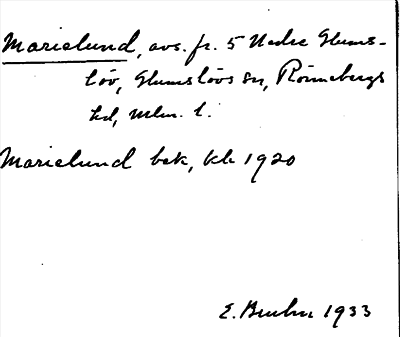 Marielund, avs. fr. 5 Nedre Glums-
löv, Glumslövs sn, Rönnebergs
hd, Mlm. l.
Marielund bek, kb 1920
E. Bruhn 1933